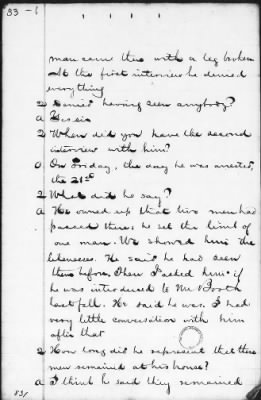 33-6
man came there with a leg broken
At the first interview he denied
everything
Q Denied having seen anybody?
A Yes sir
Q When did you have the second
interview with him?
A On Friday, the day he was arrested,
the 21st
Q What did he say?
A He owned up that two men had
passed there: he set the limb of
one man. We showed him the
likenesses. He said he had seen
them before. Then I asked him if
he was introduced to Mr Booth
last fall. He said he was. I had
very little conversation with him
after that
Q How long did he represent that these
men remained at his house?
A I think he said they remained